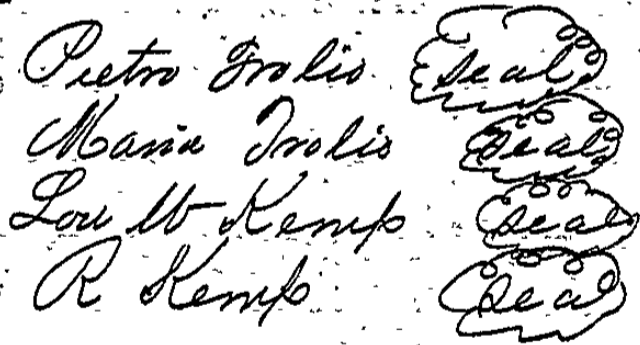 Pietro Trolio Seal
Maria Trolio Seal
Lou W Kemp Seal
R Kemp Seal